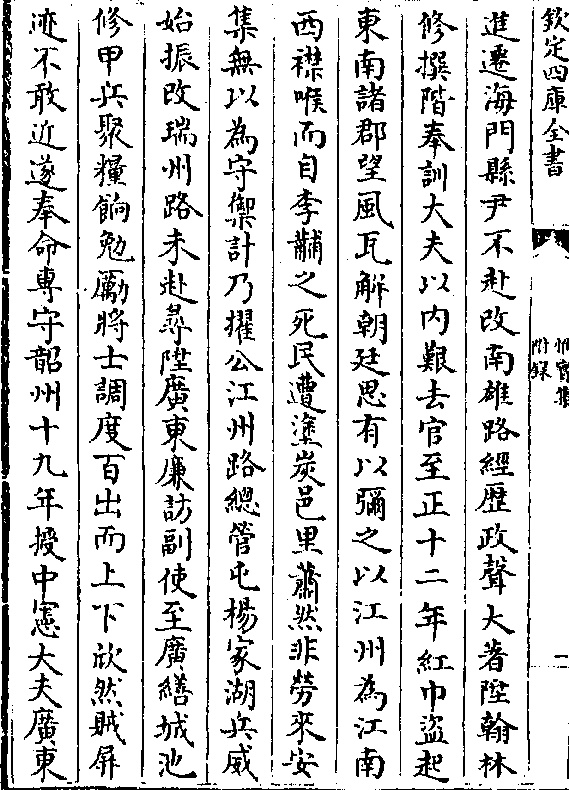 欽定四庫全書
惟實集
附錄
一
進遷海門縣尹不赴改南雄路經歷政聲大著陞翰林
修撰階奉訓大夫以内艱去官至正十二年紅巾盜起
東南諸郡望風瓦解朝廷思有以彌之以江州為江南
西襟喉而自李黼之死民遭塗炭邑里蕭然非勞來安
集無以為守禦計乃擢公江州路總管屯楊家湖兵威
始振改瑞州路未赴尋陞廣東廉訪副使至廣繕城池
修甲兵聚糧餉勉厲將士調度百出而上下欣然賊屏
迹不敢近遂奉命專守韶州十九年授中憲大夫廣東